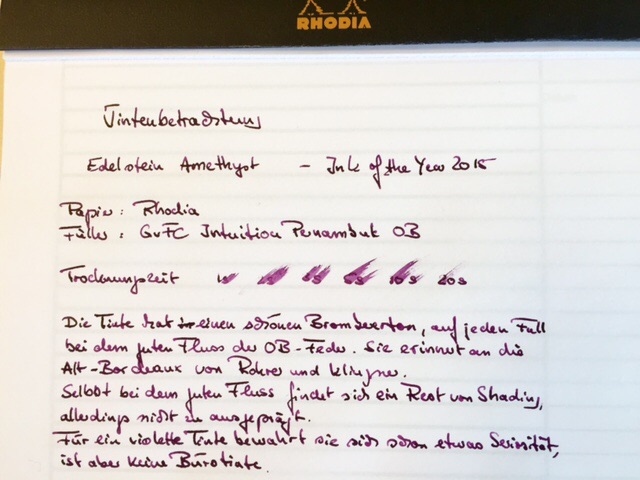 RHODIA
Tintenbetrachtung
Edelstein Amethyst - Ink of the Year 2015
Papier: Rhodia
Füller: GvFC Intuition Pernambuk OB
Trocknungszeit 1s 10s 20s
Die Tinte hat einen schönen Brombeerton, auf jeden Fall
bei dem guten Fluss der OB-Feder. Sie erinnert an die
Alt-Bordeaux von Rohrer und Klingner.
Selbst bei dem guten Fluss findet sich ein Rest von Shading,
allerdings nicht zu ausgeprägt.
Für ein violette Tinte bewahrt sie sich schon etwas Seriosität,
ist aber keine Bürotinte.